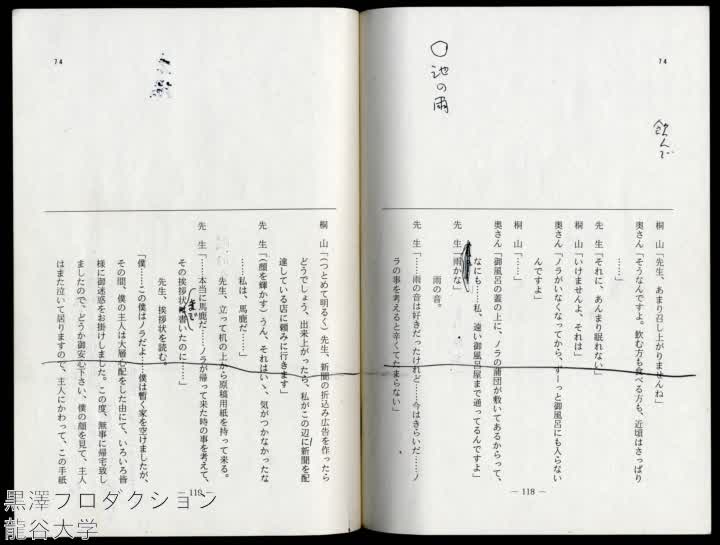 74
飲んで
○池の雨
桐山「先生、あまり召し上がりませんね」
奥さん「そうなんですよ。飲む方も食べる方も、近頃はさっぱり
……」
先生「それに、あんまり眠れない」
桐山「いけませんよ、それは」
奥さん「ノラがいなくなってから、ずーっと御風呂にも入らない
んですよ」
桐山「……」
奥さん「御風呂の蓋の上に、ノラの蒲団が敷いてあるからって、
なにも……私、遠い御風呂屋まで通ってるんですよ」
雨の音。
先生「雨かな」
先生「……雨の音は好きだったけれど……今はきらいだ……ノ
ラの事を考えると辛くてたまらない」
— 118 —
74
桐山「（つとめて明るく）先生、新聞の折込み広告を作ったら
どうでしょう、出来上がったら、私がこの辺に新聞を配
達している店に頼みに行きます」
先生「（顔を輝かす）うん、それはいゝ、気がつかなかったな
……私は、馬鹿だ……」
先生、立って机の上から原稿用紙を持って来る。
先生「……本当に馬鹿だ……ノラが帰って来た時の事を考えて、
その挨拶状まで書いたのに……」
先生、挨拶状を読む。
「僕……この僕はノラだよ……僕は暫く家を空けましたが、
その間、僕の主人は大層心配をした由にて、いろいろ皆
様に御迷惑をお掛けしました。この度、無事に帰宅致し
ましたので、どうか御安心下さい、僕の顔を見て、主人
はまた泣いて居りますので、主人にかわって、この手紙
— 119 —
黒澤プロダクション
龍谷大学